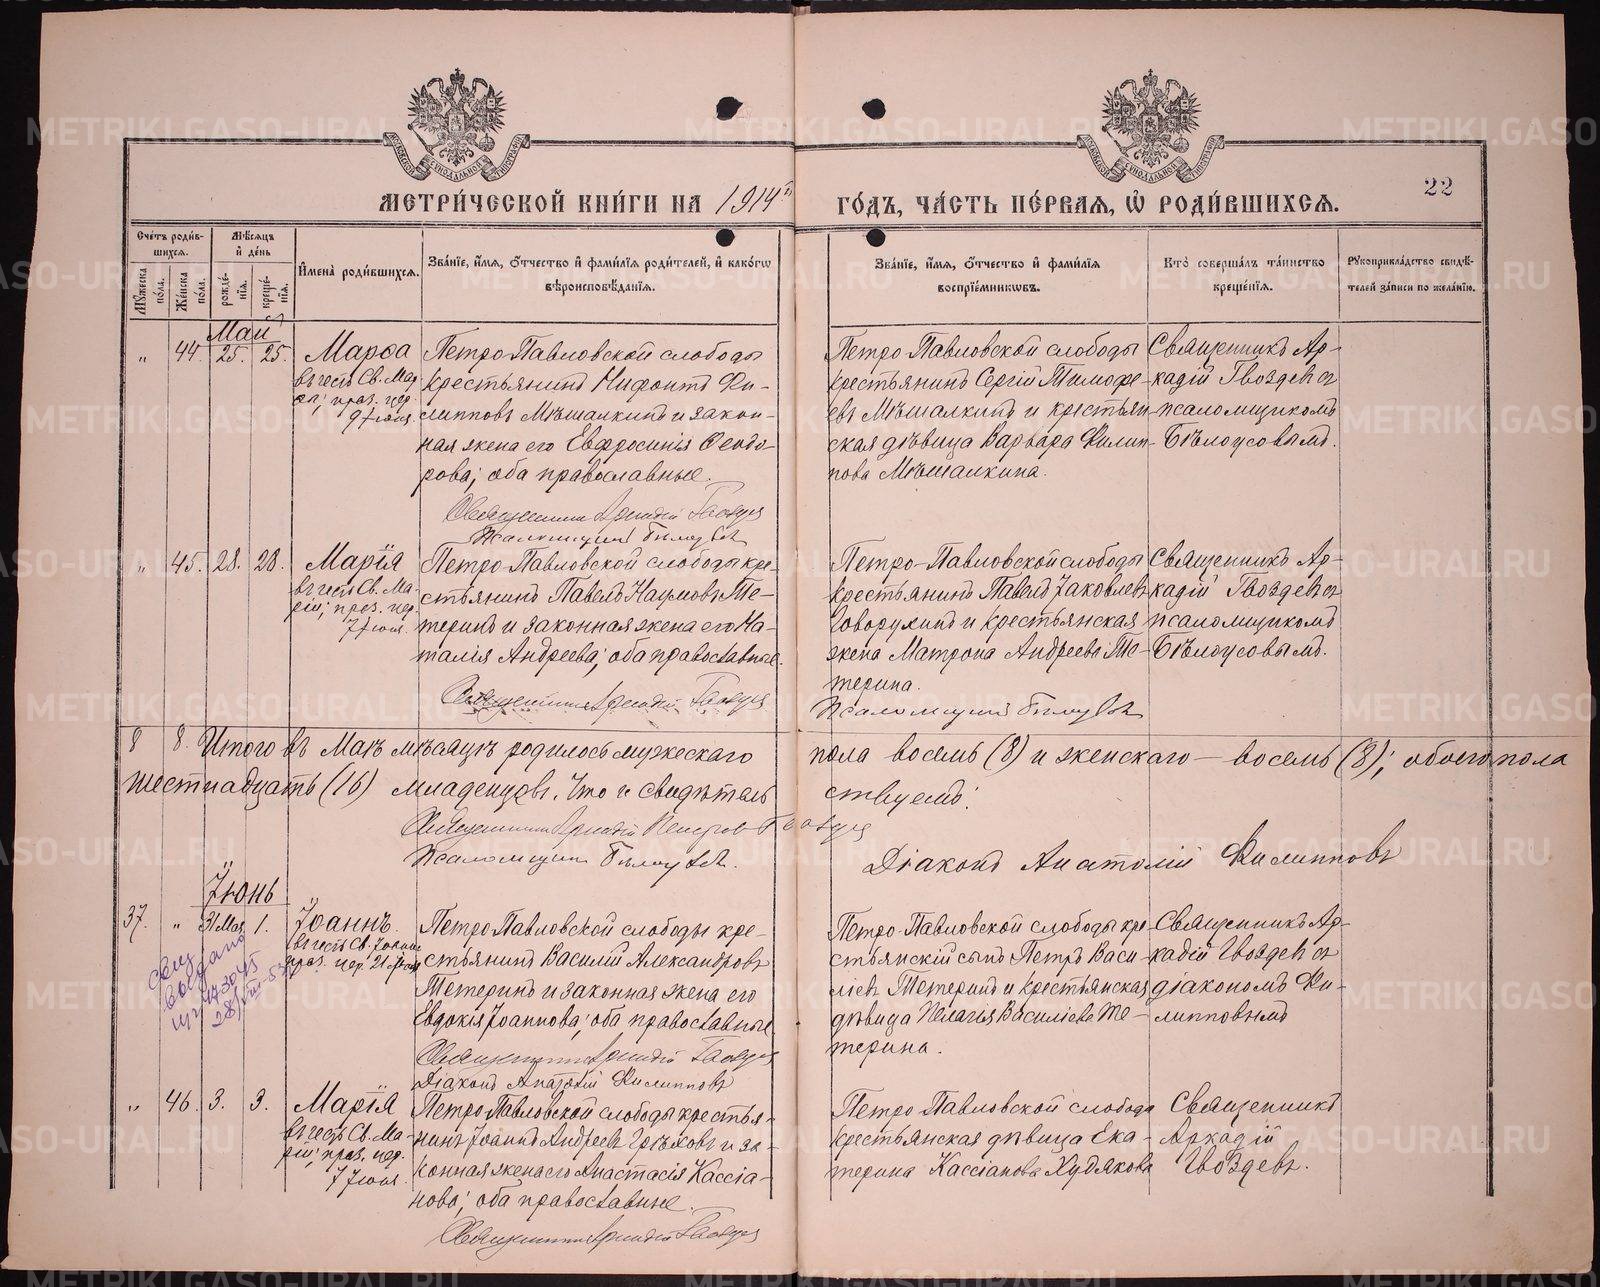 МЕТРИ́ЧЕСКОЙ КНИ́ГИ НА 1914й
ГО́ДЪ, ЧА́СТЬ ПЕ́РВАЯ, Ѡ РОДИ́ВШИХСЯ.
22
Сче́тъ роди́в-
шихся.
Му́жеска по́ла.
Же́нска по́ла.
Мѣ́сяцъ
и҆ де́нь
рожде́-
нїя.
креще́-
нїя.
И҆мена̀ роди́вшихся.
Зва́нїе, и҆́мя, ѻ҆́тчество и҆ фами́лїя роди́телей, и҆ како́гѡ
вѣроисповѣ́данїя.
Зва́нїе, и҆́мя, ѻ҆́тчество и҆ фами́лїя
воспрїе́мникѡвъ.
Кто̀ соверша́лъ та́инство
креще́нїя.
Рукоприкла́дство свидѣ́-
телей за́писи по жела́нїю.
Май
„ 44. 25. 25.
Марѳа
въ честь Св. Мар
ѳы; праз. чер.
9 Іюня.
Петро-Павловской слободы
крестьянинъ Нифонтъ Фи-
липповъ Мѣшалкинъ и закон-
ная жена его Евфросинія Ѳеодо-
рова; оба православные.
Священникъ Аркадій Гвоздев
Псаломщикъ Белоусов
Петро Павловской слободы
крестьянинъ Сергій Тимофе-
евъ Мѣшалкинъ и крестьян-
ская дѣвица Варвара Филип-
пова Мѣшалкина.
Священникъ Ар-
кадій Гвоздевъ съ
псаломщикомъ
Бѣлоусовымъ.
„ 45. 28. 28.
Марія
въ честь Св. Ма-
ріи; праз. чер.
7 Іюня.
Петро-Павловской слободы кре-
стьянинъ Павелъ Наумовъ Те-
теринъ и законная жена его На-
талія Андреева; оба православные.
Священникъ Аркадій Гвоздев
Петро-Павловской слободы
крестьянинъ Павелъ Іаковлевъ
Говорухинъ и крестьянская
жена Матрона Андреева Те-
терина.
Псаломщикъ Белоусов
Священникъ Ар-
кадій Гвоздевъ съ
псаломщикомъ
Бѣлоусовымъ.
8 8. Итого въ Маѣ мѣсяцѣ родилось мужескаго пола восемь (8) и женскаго — восемь (8); обоего пола
шестнадцать (16) младенцовъ. Что и свидѣтель ствуемъ:
Священникъ Аркадій Петров Гвоздев
Псаломщикъ Белоусов.
Діаконъ Анатолій Филипповъ
Іюнь
37. „ 31 Мая 1.
Іоаннъ.
въ честь Св. Іоанна
праз. чер. 21 Іюня
Свид
выдано
28/VIII-53
Петро Павловской слободы кре-
стьянинъ Василій Александровъ
Тетеринъ и законная жена его
Евдокія Іоаннова; оба православные
Священникъ Аркадій Гвоздев
Діаконъ Анатолій Филипповъ
Петро-Павловской слободы кре-
стьянскій сынъ Петръ Васи-
ліевъ Тетеринъ и крестьянская
дѣвица Пелагія Василіева Те-
терина.
Священникъ Ар-
кадій Гвоздевъ съ
діакономъ Фи-
липповымъ
„ 46. 3. 3.
Марія
въ честь Св. Ма-
ріи; праз. чер.
7 Іюня.
Петро Павловской слободы крестья-
нинъ Іоаннъ Андреевъ Грѣховъ и за-
конная жена его Анастасія Кассіа-
нова; оба православные.
Священникъ Аркадій Гвоздев
Петро Павловской слободы
крестьянская дѣвица Ека-
терина Кассіанова Худякова
Священникъ
Аркадій
Гвоздевъ.
METRIKI.GASO-URAL.RU